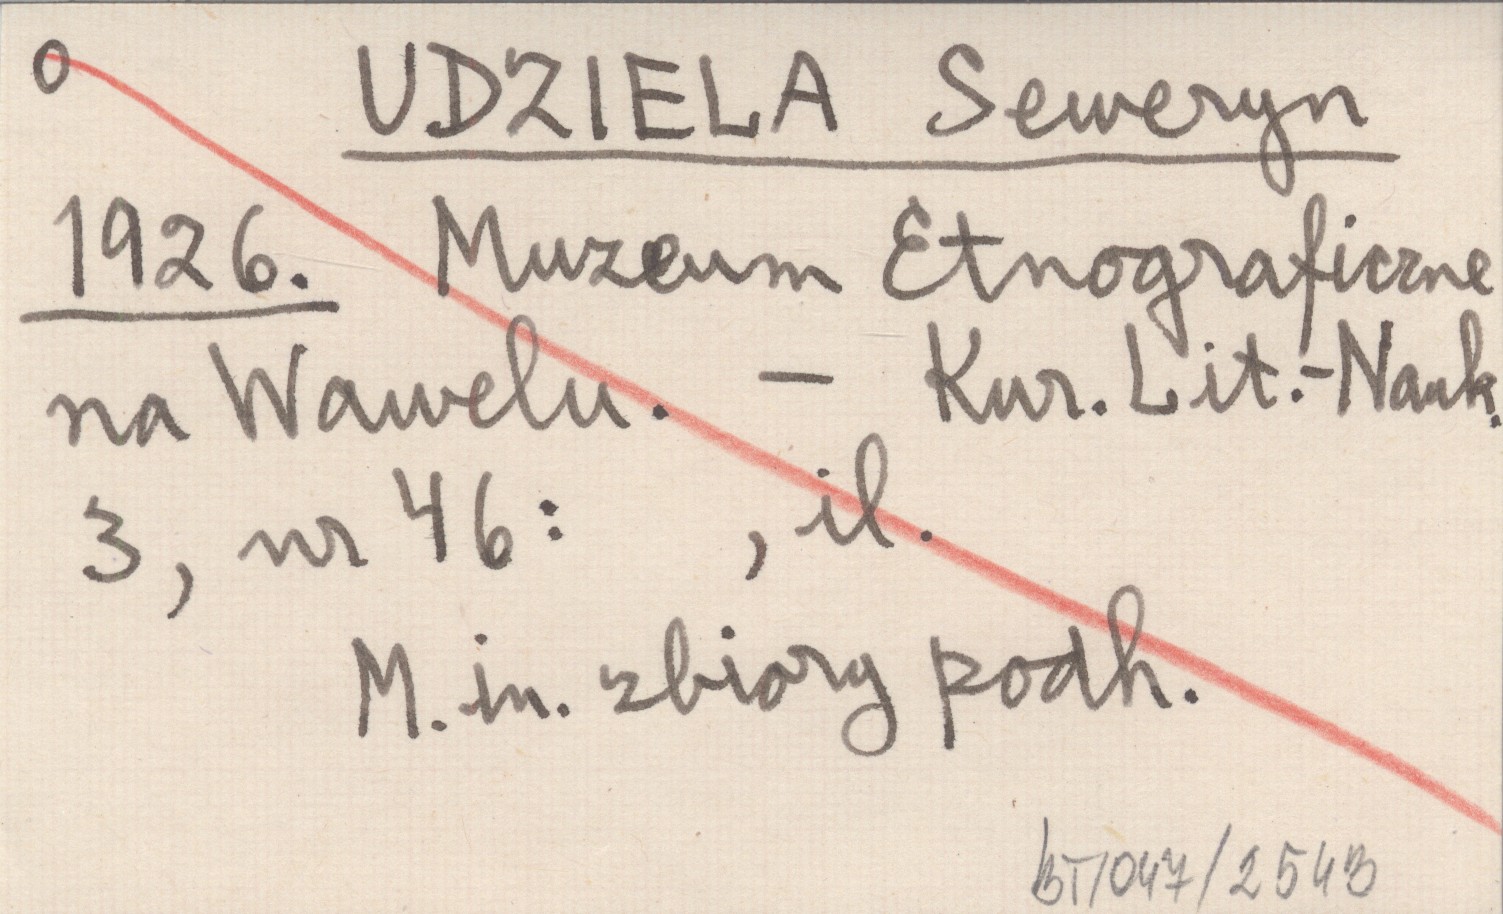 O UDZIELA Seweryn
1926. Muzeum Etnograficzne
na Wawelu. – Kur. Lit.-Nauk.
3, nr 46: , il.
M.in. zbiory podh.
BT/047/2543